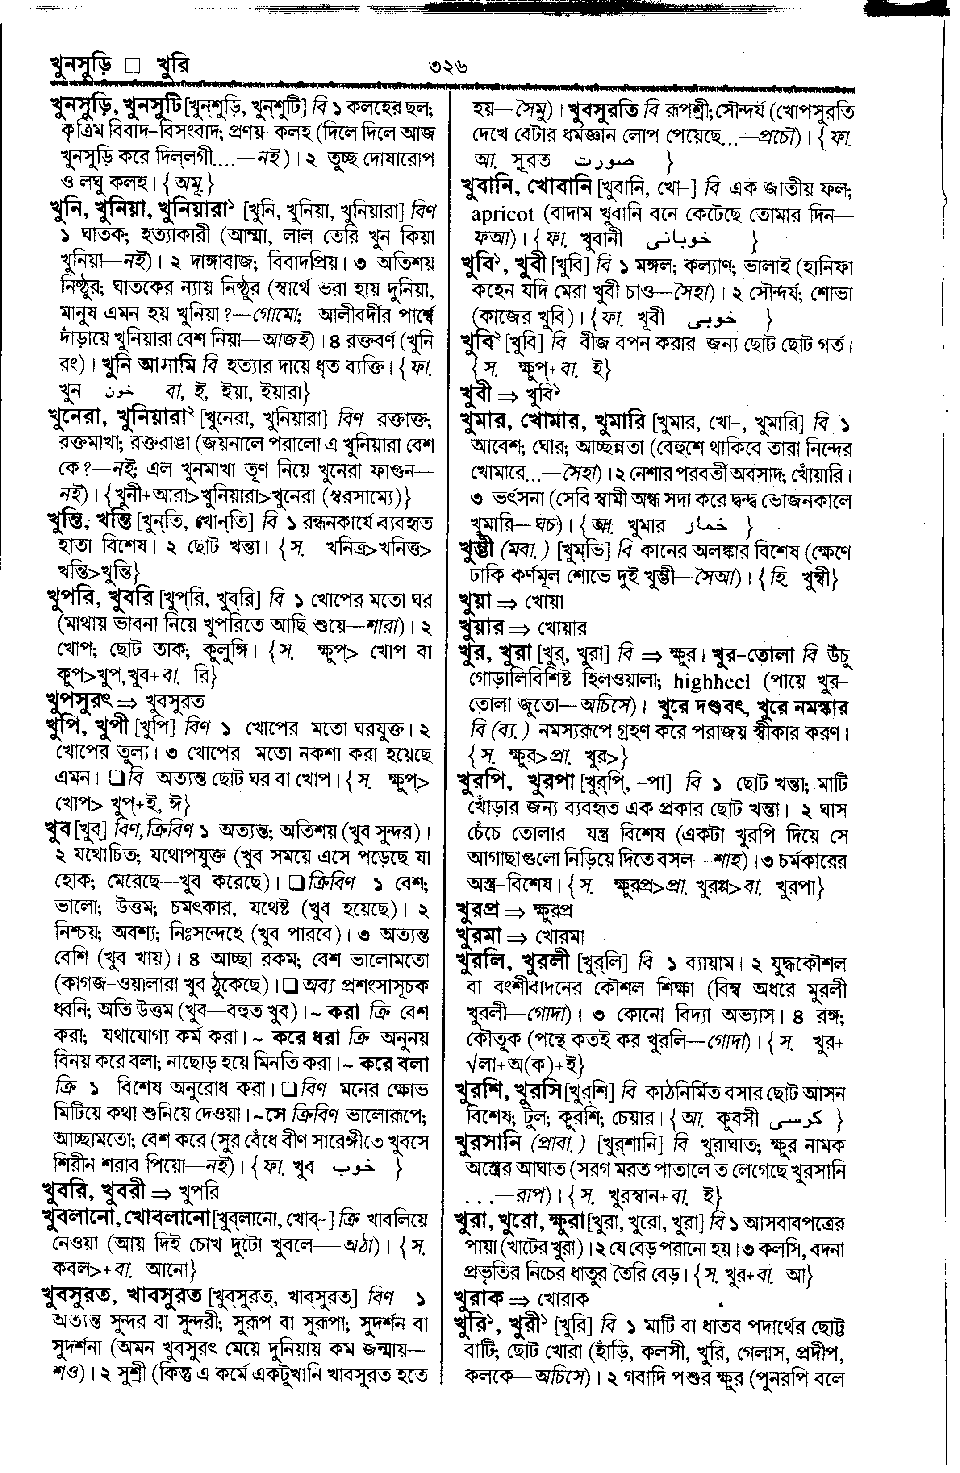 খুনসুড়ি □ খুরি
৩২৬
খুনসুড়ি, খুনসুটি [খুন্‌শুড়ি, খুন্‌শুটি] বি ১ কলহের ছল;
কৃত্রিম বিবাদ-বিসংবাদ; প্রণয় কলহ (দিলে দিলে আজ
খুনসুড়ি করে দিল্‌লগী....—নই)। ২ তুচ্ছ দোষারোপ
ও লঘু কলহ। {অমূ.}
খুনি, খুনিয়া, খুনিয়ারা১ [খুনি, খুনিয়া, খুনিয়ারা] বিণ
১ ঘাতক; হত্যাকারী (আম্মা, লাল তেরি খুন কিয়া
খুনিয়া—নই)। ২ দাঙ্গাবাজ; বিবাদপ্রিয়। ৩ অতিশয়
নিষ্ঠুর; ঘাতকের ন্যায় নিষ্ঠুর (স্বার্থে ভরা হায় দুনিয়া,
মানুষ এমন হয় খুনিয়া?—গোমো; আলীবর্দীর পার্শ্বে
দাঁড়ায়ে খুনিয়ারা বেশ নিয়া—আজই)। ৪ রক্তবর্ণ (খুনি
রং)। খুনি আসামি বি হত্যার দায়ে ধৃত ব্যক্তি। {ফা.
খুন خون বা. ই, ইয়া, ইয়ারা}
খুনেরা, খুনিয়ারা২ [খুনেরা, খুনিয়ারা] বিণ রক্তাক্ত;
রক্তমাখা; রক্তরাঙা (জয়নালে পরালো এ খুনিয়ারা বেশ
কে?—নই; এল খুনমাখা তূণ নিয়ে খুনেরা ফাগুন—
নই)। {খুনী+আরা>খুনিয়ারা>খুনেরা (স্বরসাম্যে)}
খুন্তি, খন্তি [খুন্‌তি, খোন্‌তি] বি ১ রন্ধনকার্যে ব্যবহৃত
হাতা বিশেষ। ২ ছোট খন্তা। {স. খনিত্র>খনিত্ত>
খন্তি>খুন্তি}
খুপরি, খুবরি [খুপ্‌রি, খুব্‌রি] বি ১ খোপের মতো ঘর
(মাথায় ভাবনা নিয়ে খুপরিতে আছি শুয়ে—শারা)। ২
খোপ; ছোট তাক; কুলুঙ্গি। {স. ক্ষুপ্‌> খোপ বা
কূপ>খুপ,খুব+বা. রি}
খুপসুরৎ ⇒ খুবসুরত
খুপি, খুপী [খুপি] বিণ ১ খোপের মতো ঘরযুক্ত। ২
খোপের তুল্য। ৩ খোপের মতো নকশা করা হয়েছে
এমন। ❑বি অত্যন্ত ছোট ঘর বা খোপ। {স. ক্ষুপ্‌>
খোপ> খুপ্‌+ই, ঈ}
খুব [খুব্‌] বিণ,ক্রিবিণ ১ অত্যন্ত; অতিশয় (খুব সুন্দর)।
২ যথোচিত; যথোপযুক্ত (খুব সময়ে এসে পড়েছে যা
হোক; মেরেছে—খুব করেছে)। ❑ক্রিবিণ ১ বেশ;
ভালো; উত্তম; চমৎকার, যথেষ্ট (খুব হয়েছে)। ২
নিশ্চয়; অবশ্য; নিঃসন্দেহে (খুব পারবে)। ৩ অত্যন্ত
বেশি (খুব খায়)। ৪ আচ্ছা রকম; বেশ ভালোমতো
(কাগজ-ওয়ালারা খুব ঠুকেছে)। ❑ অব্য প্রশংসাসূচক
ধ্বনি; অতি উত্তম (খুব—বহুত খুব)। ~ করা ক্রি বেশ
করা; যথাযোগ্য কর্ম করা। ~ করে ধরা ক্রি অনুনয়
বিনয় করে বলা; নাছোড় হয়ে মিনতি করা। ~ করে বলা
ক্রি ১ বিশেষ অনুরোধ করা। ❑বিণ মনের ক্ষোভ
মিটিয়ে কথা শুনিয়ে দেওয়া। ~সে ক্রিবিণ ভালোরূপে;
আচ্ছামতো; বেশ করে (সুর বেঁধে বীণ সারেঙ্গীতে খুবসে
শিরীন শরাব পিয়ো—নই)। {ফা. খুব خوب }
খুবরি, খুবরী ⇒ খুপরি
খুবলানো, খোবলানো [খুব্‌লানো, খোব্‌-] ক্রি খাবলিয়ে
নেওয়া (আয় দিই চোখ দুটো খুবলে—অঠা)। {স.
কবল>+বা. আনো}
খুবসুরত, খাবসুরত [খুব্‌সুরত্‌, খাব্‌সুরত্‌] বিণ ১
অত্যন্ত সুন্দর বা সুন্দরী; সুরূপ বা সুরূপা; সুদর্শন বা
সুদর্শনা (অমন খুবসুরৎ মেয়ে দুনিয়ায় কম জন্মায়—
শও)। ২ সুশ্রী (কিন্তু এ কর্মে একটুখানি খাবসুরত হতে
হয়—সৈমু)। খুবসুরতি বি রূপশ্রী; সৌন্দর্য (খোপসুরতি
দেখে বেটার ধর্মজ্ঞান লোপ পেয়েছে...—প্রচৌ)। {ফা.
আ. সূরত صورت }
খুবানি, খোবানি [খুবানি, খো-] বি এক জাতীয় ফল;
apricot (বাদাম খুবানি বনে কেটেছে তোমার দিন—
ফআ)। {ফা. খুবানী خوبانى }
খুবি১, খুবী [খুবি] বি ১ মঙ্গল; কল্যাণ; ভালাই (হানিফা
কহেন যদি মেরা খুবী চাও—সৈহা)। ২ সৌন্দর্য; শোভা
(কাজের খুবি)। {ফা. খূবী خوبى }
খুবি২ [খুবি] বি বীজ বপন করার জন্য ছোট ছোট গর্ত।
{স. ক্ষুপ+বা. ই}
খুবী ⇒ খুবি১
খুমার, খোমার, খুমারি [খুমার, খো-, খুমারি] বি ১
আবেশ; ঘোর; আচ্ছন্নতা (বেহুশে থাকিবে তারা নিন্দের
খোমারে...—সৈহা)। ২ নেশার পরবর্তী অবসাদ; খোঁয়ারি।
৩ ভর্ৎসনা (সেবি স্বামী অন্ধ সদা করে দ্বন্দ্ব ভোজনকালে
খুমারি—ঘচ)। {আ. খুমার خمار }
খুম্ভী (মবা.) [খুম্‌ভি] বি কানের অলঙ্কার বিশেষ (ক্ষেণে
ঢাকি কর্ণমূল শোভে দুই খুম্ভী—সৈআ)। {হি. খুম্বী}
খুয়া ⇒ খোয়া
খুয়ার ⇒ খোয়ার
খুর, খুরা [খুর্‌, খুরা] বি ⇒ ক্ষুর। খুর-তোলা বি উঁচু
গোড়ালিবিশিষ্ট হিলওয়ালা; highheel (পায়ে খুর-
তোলা জুতো—অচিসে)। খুরে দণ্ডবৎ, খুরে নমস্কার
বি (ব্য.) নমস্যরূপে গ্রহণ করে পরাজয় স্বীকার করণ।
{স. ক্ষুর>প্রা. খুর>}
খুরপি, খুরপা [খুর্‌পি, -পা] বি ১ ছোট খন্তা; মাটি
খোঁড়ার জন্য ব্যবহৃত এক প্রকার ছোট খন্তা। ২ ঘাস
চেঁচে তোলার যন্ত্র বিশেষ (একটা খুরপি দিয়ে সে
আগাছাগুলো নিড়িয়ে দিতে বসল—শাহ)। ৩ চর্মকারের
অস্ত্র-বিশেষ। {স. ক্ষুরপ্র>প্রা. খুরপ্প>বা. খুরপা}
খুরপ্র ⇒ ক্ষুরপ্র
খুরমা ⇒ খোরমা
খুরলি, খুরলী [খুর্‌লি] বি ১ ব্যায়াম। ২ যুদ্ধকৌশল
বা বংশীবাদনের কৌশল শিক্ষা (বিম্ব অধরে মুরলী
খুরলী—গোদা)। ৩ কোনো বিদ্যা অভ্যাস। ৪ রঙ্গ;
কৌতুক (পন্থে কতই কর খুরলি—গোদা)। {স. খুর+
√লা+অ(ক)+ই}
খুরশি, খুরসি [খুর্‌শি] বি কাঠনির্মিত বসার ছোট আসন
বিশেষ; টুল; কুরশি; চেয়ার। {আ. কুরসী كرسى }
খুরসানি (প্রাবা.) [খুর্‌শানি] বি খুরাঘাত; ক্ষুর নামক
অস্ত্রের আঘাত (সরগ মরত পাতালে ত লেগেছে খুরসানি
...—রাপ)। {স. খুরস্বান+বা. ই}
খুরা, খুরো, ক্ষুরা [খুরা, খুরো, খুরা] বি ১ আসবাবপত্রের
পায়া (খাটের খুরা)। ২ যে বেড় পরানো হয়। ৩ কলসি, বদনা
প্রভৃতির নিচের ধাতুর তৈরি বেড়। {স. খুর+বা. আ}
খুরাক ⇒ খোরাক
খুরি১, খুরী১ [খুরি] বি ১ মাটি বা ধাতব পদার্থের ছোট্ট
বাটি; ছোট খোরা (হাঁড়ি, কলসী, খুরি, গেলাস, প্রদীপ,
কলকে—অচিসে)। ২ গবাদি পশুর ক্ষুর (পুনরপি বলে